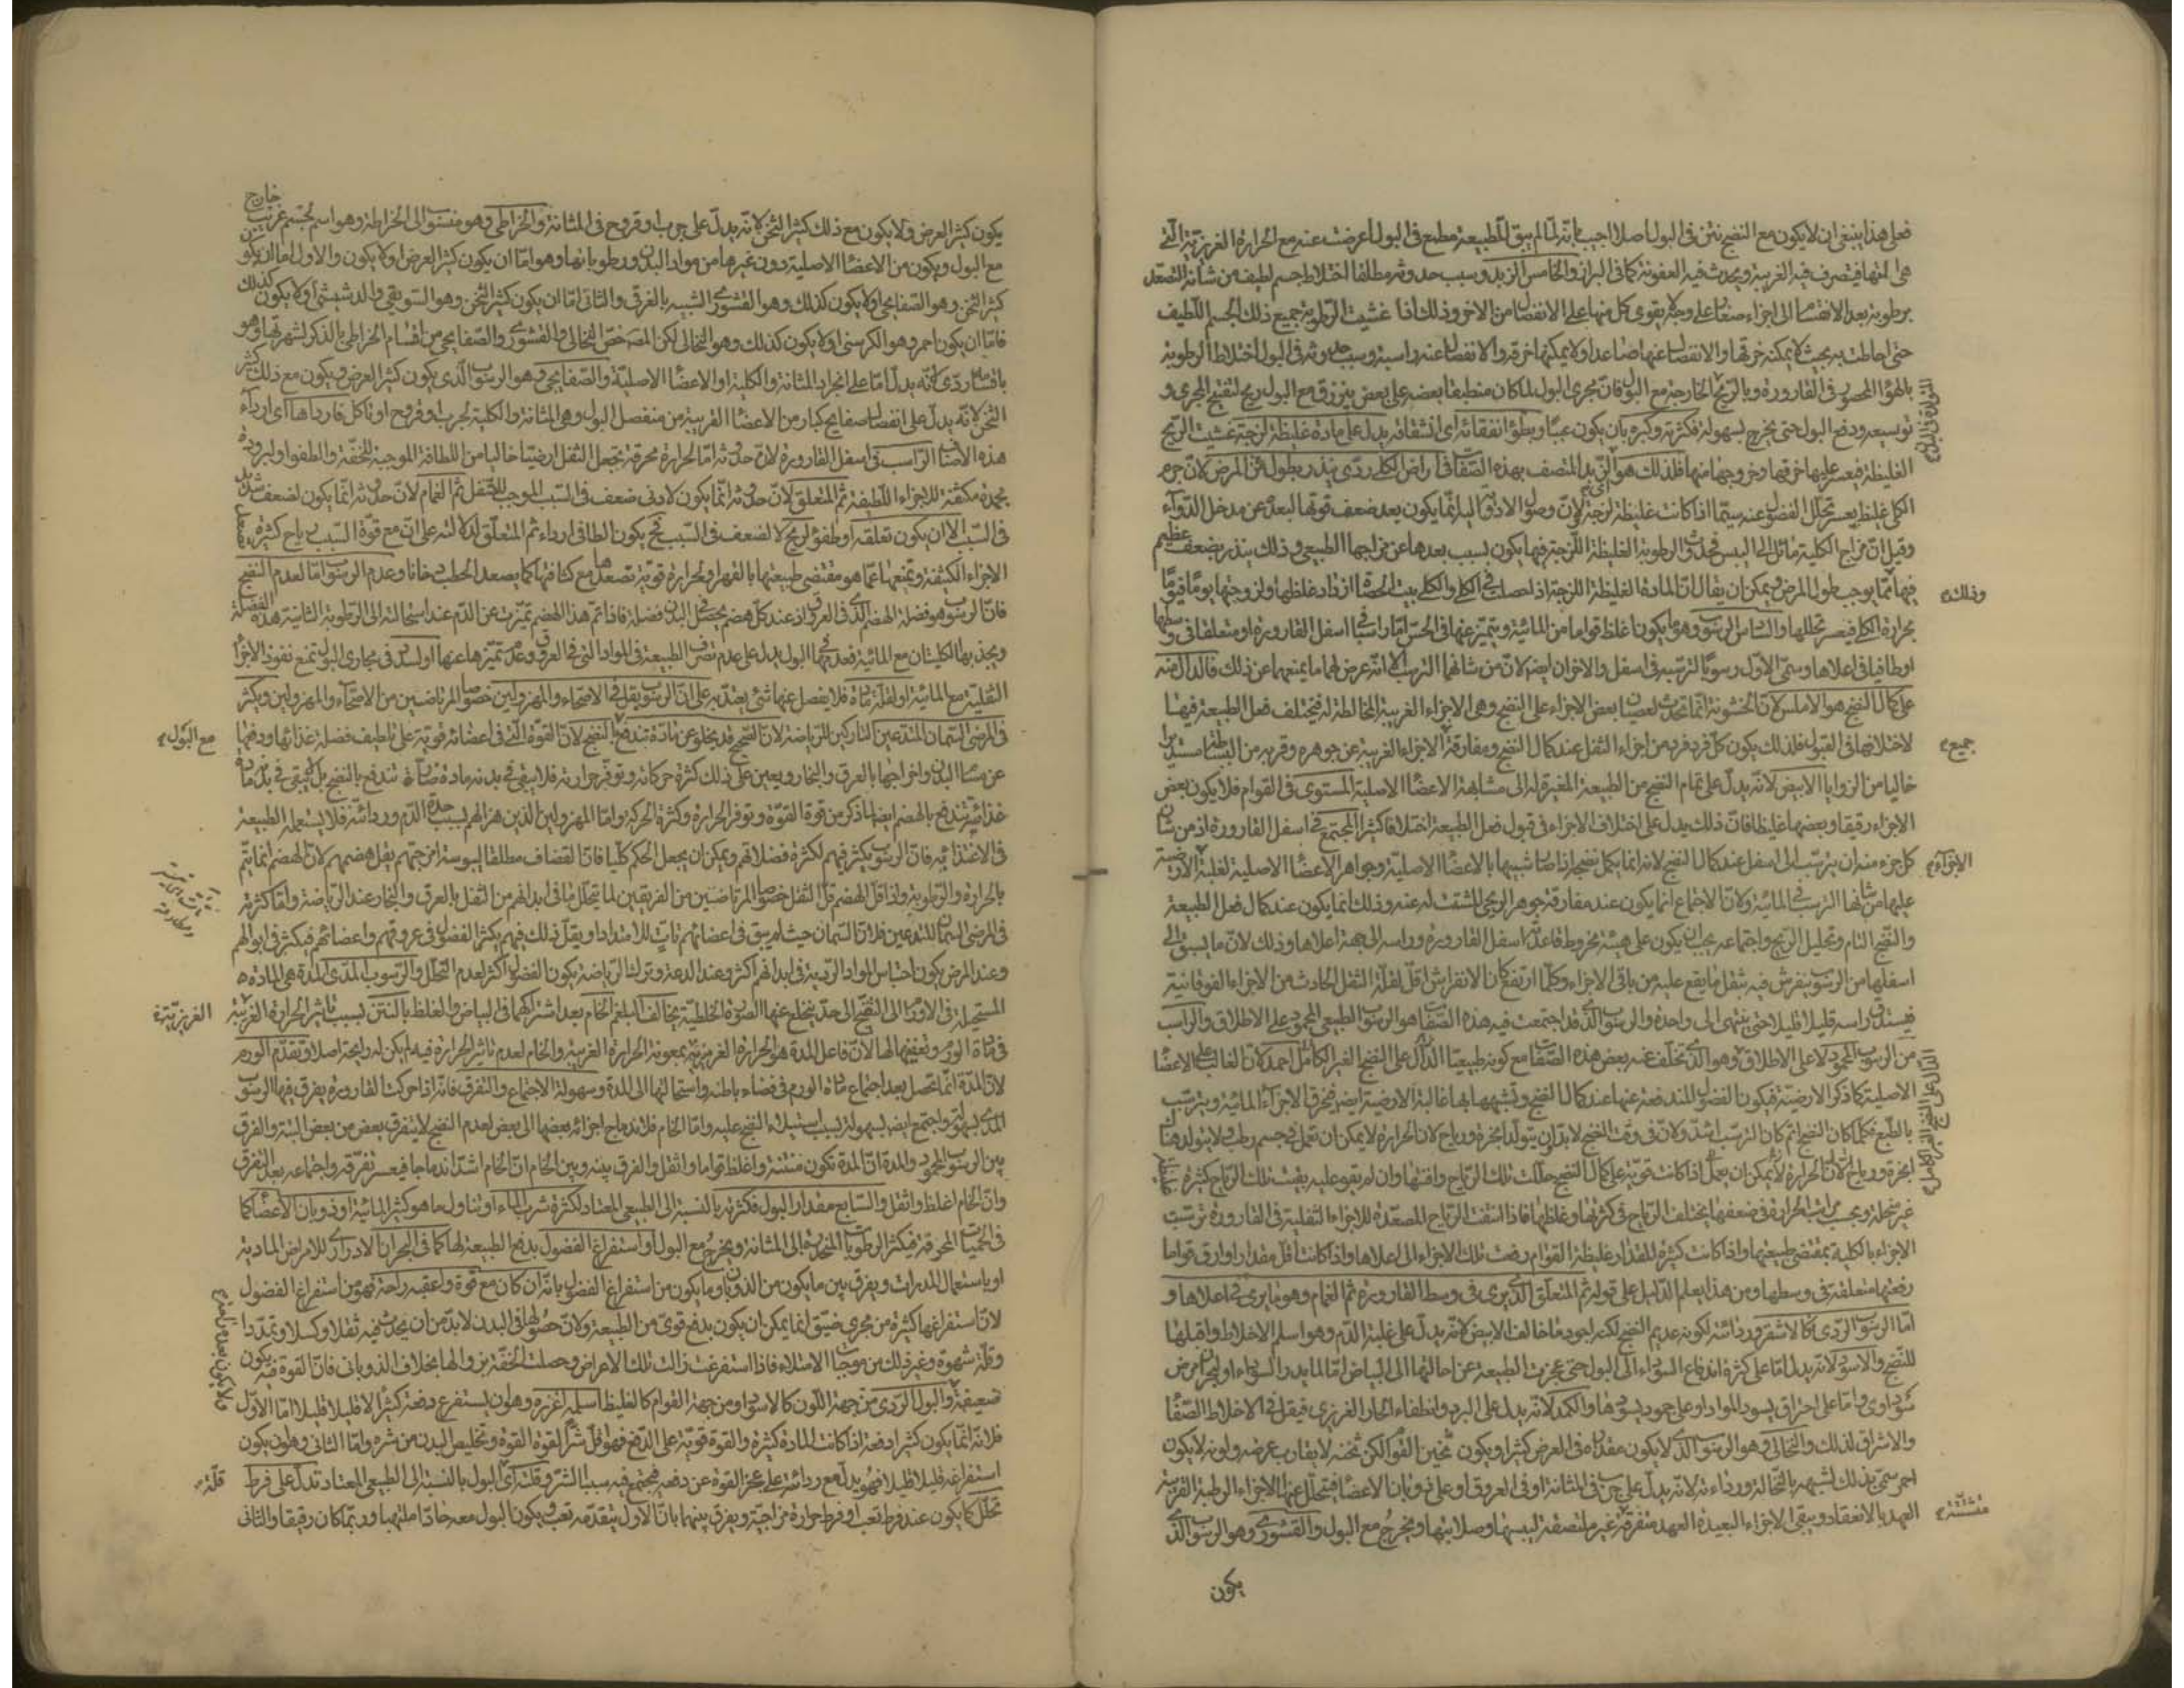 فعلى هذا ينبغى ان لا يكون مع النضج نتن فى البول اصلا اجيب بانه لما لم يبق للطبيعة مطمع فى البول اعرضت عنه مع الحرارة الغريزية التى
هى آلتها فيتصرف فيه الغريبة ويحدث فيه العفونة كما فى البراز والخامس الزبد وسبب حدوثه مطلقا اختلاط جسم لطيف من شانه التصعد
برطوبة بعد الانقسام الى اجزاء صغار على وجه يقوى كل منها على الانفصال من الاخر وذلك اذا غشيت الرطوبة جميع ذلك الجسم اللطيف
حتى احاطت به بحيث لا يمكنه خرقها والانفصال عنها صاعدا ولا يمكنها خرقه والانفصال عنه راسبة وسبب حدوثه فى البول اختلاط الرطوبة
بالهواء المحصور فى القارورة وبالريح الخارجة مع البول فان مجرى البول لما كان منطبقا بعضه على بعض ينزرق مع البول ريح لتفتيح المجرى و
توسيعه ودفع البول حتى يخرج بسهولة فكثرته وكبره بان يكون عببا وبطؤ انفقائه اى انشقاقه يدل على مادة غليظة لزجة غشيت الريح
الغليظة فيعسر عليها خرقها وخروجها منها فلذلك هو اى الزبد المتصف بهذه الصفات فى امراض الكلى ردى ينذر بطول المرض لان جرم
الكلى غليظ يعسر تحلل الفضول عنه سيما اذا كانت غليظة لزجة ولان وصول الادوية اليها انما يكون بعد ضعف قوتها لبعده عن مدخل الدواء
وقيل ان مزاج الكلية مائل الى اليبس فحدوث الرطوبة الغليظة اللزجة فيها يكون بسبب بعدها عن مزاجها الطبيعى وذلك ينذر بضعف عظيم
فيها مما يوجب طول المرض ويمكن ان يقال ان المادة الغليظة اللزجة اذا حصلت فى الكلى والكلى بيت الحصاة ازداد غلظها ولزوجتها يوما فيوما
بحرارة الكلى فيعسر تحللها والسادس الرسوب وهو ما يكون اغلظ قواما من المائية ويتميز عنها فى الحس اما راسبا فى اسفل القارورة او متعلقا فى وسطها
او طافيا فى اعلاها وسمى الاول رسوبا لترسبه فى اسفل والاخران ايضا لان من شانهما الترسب الا انه عرض لهما ما يمنعهما عن ذلك فالدال منه
على كمال النضج هو الاملس لان الخشونة انما تحدث لعصيان بعض الاجزاء على النضج وهى الاجزاء الغريبة المخالطة له فيختلف فعل الطبيعة فيها
لاختلافها فى القبول فلذلك يكون كل فرد فرد من اجزاء الثفل عند كمال النضج ومفارقة الاجزاء الغريبة عن جوهره وقربه من البساطة مستديرا
خاليا من الزوايا الابيض لانه يدل على تمام النضج من الطبيعة المغيرة له الى مشابهة الاعضاء الاصلية المستوى فى القوام فلا يكون بعض
الاجزاء رقيقا وبعضها غليظا فان ذلك يدل على اختلاف الاجزاء فى قبول فعل الطبيعة اختلافا كثيرا المجتمع فى اسفل القارورة اذ من شان
كل جزء منه ان يترسب الى اسفل عند كمال النضج لانه انما يكمل نضجه اذا صار شبيها بالاعضاء الاصلية وجواهر الاعضاء الاصلية لغلبة الارضية
عليها من شانها الترسب فى المائية ولان الاجتماع انما يكون عند مفارقة جوهر الريحى المشتت له عنه وذلك انما يكون عند كمال فعل الطبيعة
والنضج التام وتحليل الريح واجتماعه يجب ان يكون على هيئة مخروط قاعدته اسفل القارورة وراسه الى جهة اعلاها وذلك لان ما يسبق الى
اسفلها من الرسوب ينفرش فيه بثقل ما يقع عليه من باقى الاجزاء وكلما ارتفع كان الانفراش اقل لقلة الثقل الحادث من الاجزاء الفوقانية
فيستدق راسه قليلا قليلا حتى ينتهى الى واحدة والرسوب الذى قد اجتمعت فيه هذه الصفات هو الرسوب الطبيعى المحمود على الاطلاق والراسب
من الرسوب المحمود لا على الاطلاق وهو الذى تخلف عنه بعض هذه الصفات مع كونه طبيعيا الدال على النضج الغير الكامل احمد لان الغالب على الاعضاء
الاصلية كما ذكر الارضية فيكون الفضول المندفعة عنها عند كمال النضج وتشبهها بها غالبة الارضية ايضا فيخرق الاجزاء المائية ويترسب
بالطبع فكلما كان النضج اتم كان الترسب اشد ولان فى وقت النضج لا بد ان يتولد ابخرة ورياح لان الحرارة لا يمكن ان تعمل فى جسم رطب ولا يتولد هناك
ابخرة ورياح لان الحرارة
غير متحللة وبحسب مراتب الحرارة فى ضعفها يختلف الرياح فى كثرتها وغلظها فاذا انتفت الرياح المصعدة للاجزاء الثفلية فى القارورة ترسبت
الاجزاء بالكلية بمقتضى طبيعتها واذا كانت كثيرة المقدار غليظة القوام رفعت تلك الاجزاء الى اعلاها واذا كانت اقل مقدارا وارق قواما
رفعتها متعلقة فى وسطها ومن هذا يعلم الدليل على قوله ثم المتعلق الذى يرى فى وسط القارورة ثم الغمام وهو ما يرى فى اعلاها و
اما الرسوب الردى كالاشقر ورداءته لكونه عديم النضج لكنه اجود مما خالف الابيض لانه يدل على غلبة الدم وهو اسلم الاخلاط واقبلها
للنضج والاسود لانه يدل اما على كثرة اندفاع السوداء الى البول حتى عجزت الطبيعة عن احالتها الى البياض
سوداوى واما على احتراق يسود المواد او على جمود يسودها والكمد لانه يدل على البرد وانطفاء الحار الغريزى فيقل فى الاخلاط الصفاء
والاشراق لذلك والنخالى وهو الرسوب الذى لا يكون مقداره فى العرض كثيرا ويكون ثخين القوام لكن ثخنه لا يقارب عرضه ولونه لا يكون
احمر سمى بذلك لشبهه بالنخالة ورداءته لانه يدل على جرب فى المثانة او فى العروق او على ذوبان الاعضاء فيتحلل عنها الاجزاء الرطبة القريبة
العهد بالانعقاد ويبقى الاجزاء البعيدة العهد متفرقة غير ملتصقة ليبسها وصلابتها ويخرج مع البول والقشورى وهو الرسوب الذى
يكون
وذلك
جميع
الاجزاء
خارج
يكون كثير العرض ولا يكون مع ذلك كثير الثخن لانه يدل على جرب او قروح فى المثانة والخراطى وهو منسوب الى الخراطة وهو اسم لجسم غريب
مع البول ويكون من الاعضاء الاصلية دون غيرها من مواد البدن ورطوباتها وهو اما ان يكون كثير العرض او لا يكون والاول اما ان يكون
كثير الثخن وهو الصفايحى او لا يكون كذلك وهو القشورى الشبيه بالغرقى والثانى اما ان يكون كثير الثخن وهو السويقى والدشيشى او لا يكون كذلك
فاما ان يكون احمر وهو الكرسنى او لا يكون كذلك وهو النخالى لكن المص خص النخالى والقشورى والصفايحى من اقسام الخراطى بالذكر لشهرتها وهو
باقسامه ردى لانه يدل اما على انجراد المثانة والكلية او الاعضاء الاصلية والصفايحى وهو الرسوب الذى يكون كثير العرض ويكون مع ذلك كثير
الثخن لانه يدل على انفصال صفايح كبار من الاعضاء القريبة من منفصل البول وهى المثانة والكلية لجرب او قروح او تاكل فاردأها اى اردأ
هذه الاصناف الراسب فى اسفل القارورة لان حدوثه اما لحرارة محرقة تجعل الثفل ارضيا خاليا من اللطافة الموجبة للخفة والطفو او لبرودة
مجمدة مكثفة للاجزاء اللطيفة ثم المتعلق لان حدوثه انما يكون لادنى ضعف فى السبب الموجب للتسفل ثم الغمام لان حدوثه انما يكون لضعف شديد
فى السبب الا ان يكون تعلقه او طفوه لريح لا لضعف فى السبب فح يكون الطافى اردأ ثم المتعلق لدلالته على ان مع قوة السبب رياح كثيرة
الاجزاء الكثيفة وتمنعها عما هو مقتضى طبيعتها بالقهر او لحرارة قوية تصعدها مع كثافتها كما يصعد الحطب دخانا وعدم الرسوب اما لعدم النضج
فان الرسوب هو فضلة الهضم الذى فى العروق اذ عند كل هضم يحصل فى البدن فضلة فاذا تم هذا الهضم تميزت عن الدم عند استحالته الى الرطوبة الثانية هذه الفضلة
ويجذبها الكليتان مع المائية فعدمها فى البول يدل على عدم تصرف الطبيعة فى المواد التى فى العروق وعدم تميزها عنها او لسدد فى مجارى البول تمنع نفوذ الاجزاء
الثفلية مع المائية او لقلة مادة فلا يفصل عنها شئ يعتد به على ان الرسوب يقل فى الاصحاء والمهزولين خصوصا المرتاضين من الاصحاء والمهزولين ويكثر
فى المرضى السمان المتدعين التاركين للرياضة لان الصحيح قد يخلو عن مادة تندفع بالنضج لان القوة التى فى اعضائه قوية على تلطيف فضلة غذائها ودفعها
عن مسام البدن واخراجها بالعرق والبخار ويعين على ذلك كثرة حركاته وتوفر حرارته فلا يبقى فى بدنه مادة صالحة تندفع بالنضج بل
غذائية تندفع بالهضم ايضا لما ذكر من قوة القوة وتوفر الحرارة وكثرة الحركة واما المهزولين الذين هزالهم بسبب حدة الدم ورداءته فلا يستعمله الطبيعة
فى الاغتذاء به فان الرسوب يكثر فيهم لكثرة فضلاتهم ويمكن ان يجعل الحكم كليا فان القضاف مطلقا ليبوسة امزجتهم يقل هضمهم لان الهضم انما يتم
بالحرارة والرطوبة واذا قل الهضم قل الثفل خصوصا المرتاضين من الفريقين لما يتحلل ما فى ابدانهم من الثفل بالعرق والبخار عند الرياضة واما كثرته
فى المرضى السمان المتدعين فلان السمان حيث لم يبق فى اعضائهم تات للامتداد ويقل ذلك فيهم يكثر الفضول فى عروقهم واعضائهم فيكثر فى ابوالهم
وعند المرض يكون احتباس المواد الردية فى ابدانهم اكثر وعند الدعة وترك الرياضة يكون الفضول اكثر لعدم التحلل والرسوب المدى المدة هى المادة
المستحيلة فى الاورام الى النضج الى حد ينخلع عنها الصورة الخلطية يخالف البلغم الخام بعد اشتراكهما فى البياض والغلظ بالنتن لسبب تاثير الحرارة الغريبة
فى مادة الورم وتعفينها لها لان فاعل المدة هو الحرارة الغريزية بمعونة الحرارة الغريبة والخام لعدم تاثير الحرارة فيه لم يكن له رايحة اصلا وتقدم الورم
لان المدة انما تحصل بعد اجتماع مادة الورم فى فضاء باطنه واستحالتها الى المدة وسهولة الاجتماع والتفرق فانه اذا حركت القارورة يفرق فيها الرسوب
المدى بسهولة واجتمع ايضا بسهولة بسبب استيلاء النضج عليه واما الخام فلاندماج اجزائه بعضها الى بعض لعدم النضج لا يتفرق بعض من بعض البتة والفرق
بين الرسوب المحمود والمدة ان المدة تكون منتنة واغلظ قواما واثقل والفرق بينه وبين الخام ان الخام اشد اندماجا فيعسر تفرقه واجتماعه بعد التفرق
وان الخام اغلظ واثقل والسابع مقدار البول فكثرته بالنسبة الى الطبيعى المعتاد لكثرة شرب الماء او تناول ما هو كثير المائية او ذوبان الاعضاء كما
فى الحميات المحرقة فيكثر الرطوبات المنحدرة الى المثانة ويخرج مع البول واستفراغ الفضول بدفع الطبيعة لها كما فى البحران الادرارى للامراض المادية
او باستعمال المدرات ويفرق بين ما يكون من الذوبان وما يكون من استفراغ الفضول بانه ان كان مع قوة واعقبه راحة فهو من استفراغ الفضول
لان استفراغها كثرة من مجرى ضيق انما يمكن ان يكون بدفع قوى من الطبيعة ولان حصولها فى البدن لا بد من ان يحدث فيه ثقلا وكسلا وتمددا
وقلة شهوة وغير ذلك من موجبات الامتلاء فاذا استفرغت زالت تلك الاعراض وحصلت الخفة بزوالها بخلاف الذوبانى فان القوة فيه يكون
ضعيفة والبول الردى من جهة اللون كالاسود او من جهة القوام كالغليظ اسلمه اغزره وهو ان يستفرغ دفعة كثيرا لا قليلا قليلا اما الاول
فلانه انما يكون كثيرا دفعة اذا كانت المادة كثيرة والقوة قوية على الدفع فهو اقل شرا لقوة القوة وتخليص البدن من شره واما الثانى وهو ان يكون
استفراغه قليلا قليلا فهو يدل مع رداءته على عجز القوة عن دفعه فيجتمع فيه سببا الشر وقلته اى البول بالنسبة الى الطبيعى المعتاد تدل على فرط
تحلل كما يكون عند فرط تعب او فرط حرارة مزاجية ويفرق بينهما بان الاول يتقدمه تعب ويكون البول معه حادا ملتهبا وربما كان رقيقا والثانى
مع البول
الغريزية
قلة